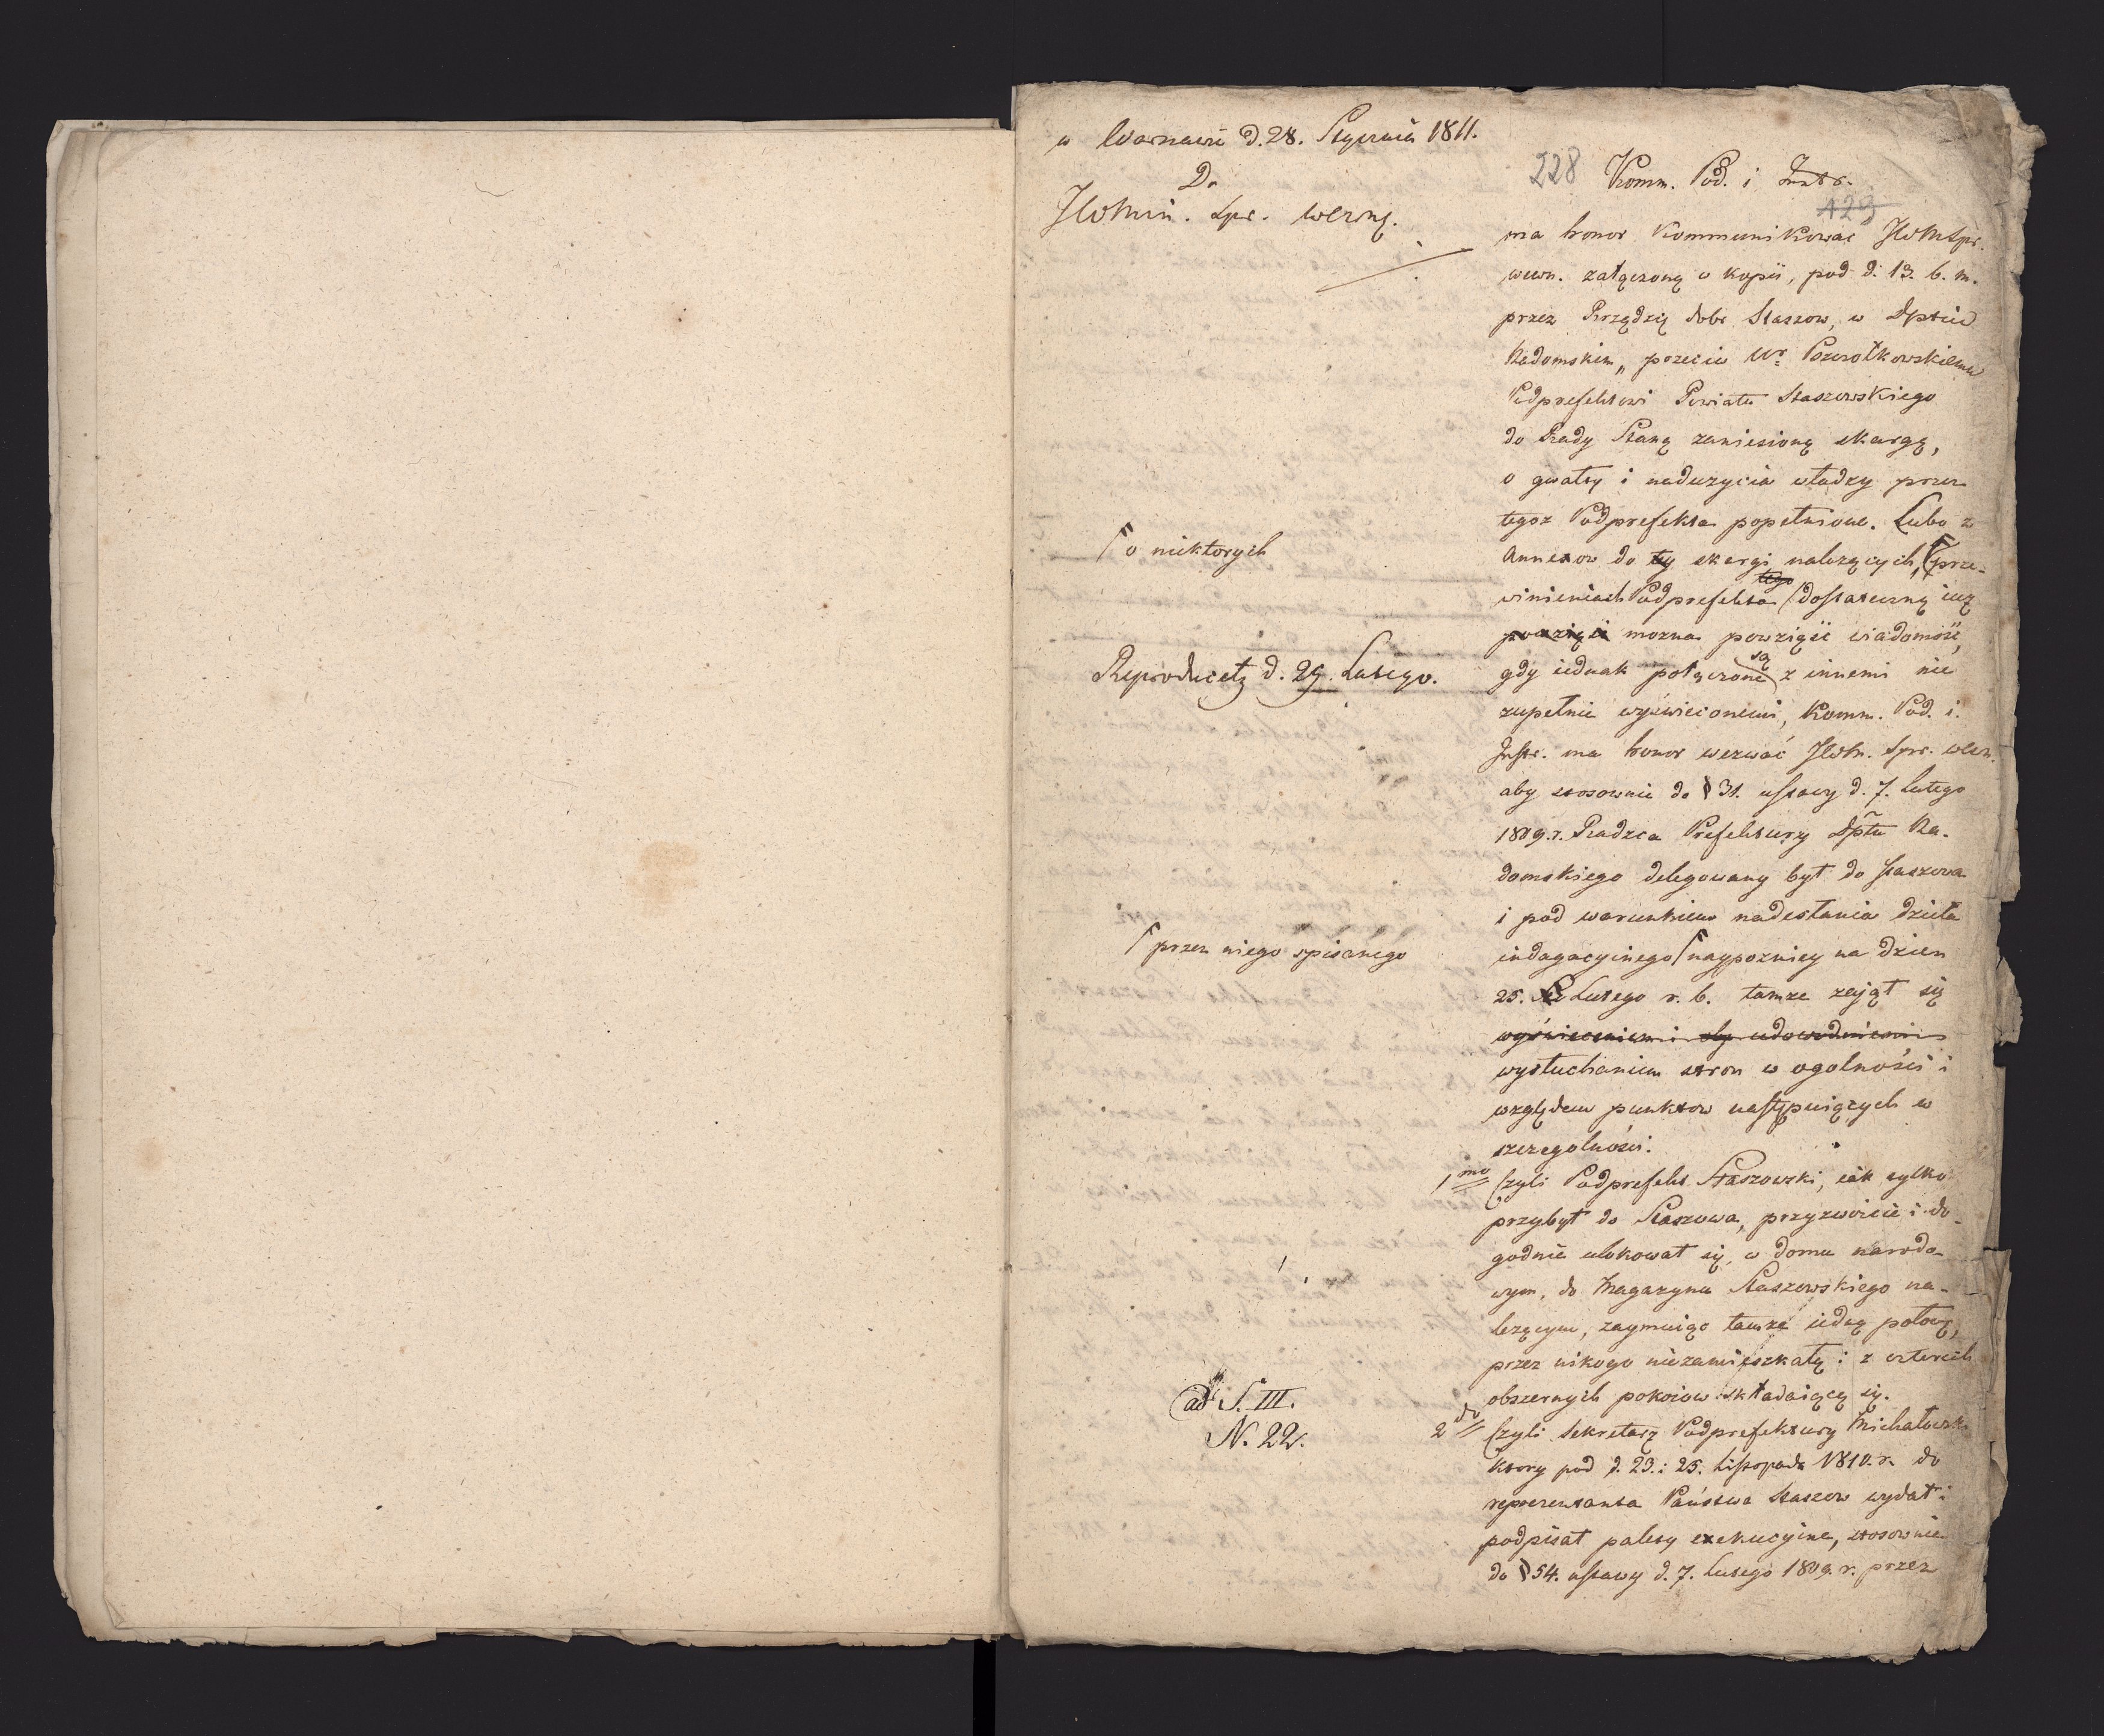 w Warszawie d. 28. Stycznia 1811.
Do
JWMin. Spr. Wewnę.
228 Komm. Pod. i Instr.
129
ma honor Kommunikować JWMSpr.
wewn. załączoną w kopii, pod d. 13. b. m.
przez Rządzcę dobr Staszow, w Dptcie
Radomskim, przeciw
Podprefektowi Powiatu Staszowskiego
do Rady Stanu zaniesioną skargę,
o gwałty i nadużycia władzy przez
tegoż Podprefekta popełnione. Lubo z
Annexow do tey skargi należących, prze-
Γ o niektorych
winieniach tego Podprefekta dostateczną iuż
powziąść można powziąść wiadomość,
Reproducetz d. 25. Lutego.
gdy iednak połączone są z innemi nie
zupełnie wyświeconemi, Komm. Pod. i
Instr. ma honor wezwać JWM. Spr. Wewn.
aby stosownie do § 31. ustawy d. 7. Lutego
1809. r. Radzca Prefektury Dptu Ra-
domskiego delegowany był do Staszowa
i pod warunkiem nadesłania dzieła
indagacyinego Γ naypozniey na dzien
Γ przez niego spisanego
25. Lutego r. b. tamże zajął się
wyświeceniem i udowodnieniem
wysłuchaniem stron w ogolności i
względem punktow następuiących w
szczegolności.
1mo Czyli Podprefekt Staszowski, iak tylko
przybył do Staszowa, przyzwoicie i do-
godnie ulokował się, w domu narodo-
wym, do Magazynu Staszowskiego na-
leżącym, zaymuiąc tamże iedną połowę,
przez nikogo niezamieszkałą i z czterech
obszernych pokoiow składaiącą się.
ad S. III.
N. 22.
2do Czyli Sekretarz Podprefektury Michałowski
ktory pod d. 23. i 25. Listopada 1810. r. do
reprezentanta Państwa Staszow wydał i
podpisał palety exekucyine, stosownie
do § 54. ustawy d. 7. Lutego 1809. r. przez